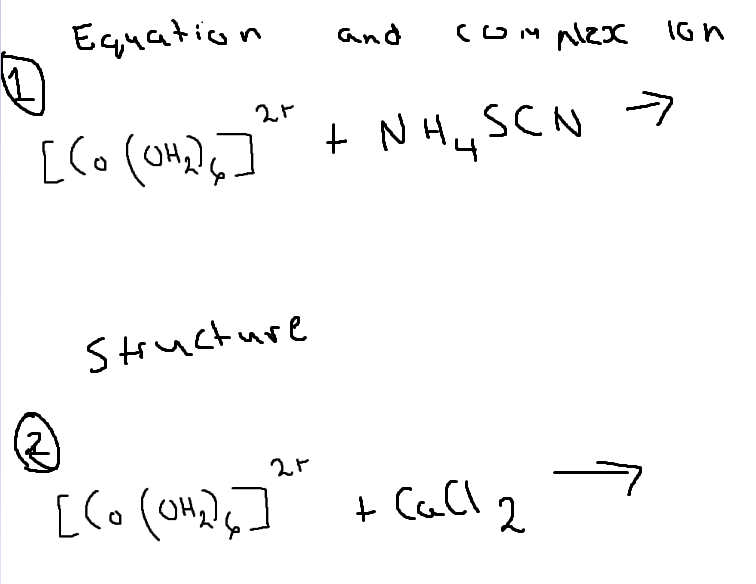 Equation and complex ion
1
[Co(OH₂)₆]²⁺ + NH₄SCN →
Structure
2
[Co(OH₂)₆]²⁺ + CaCl₂ →